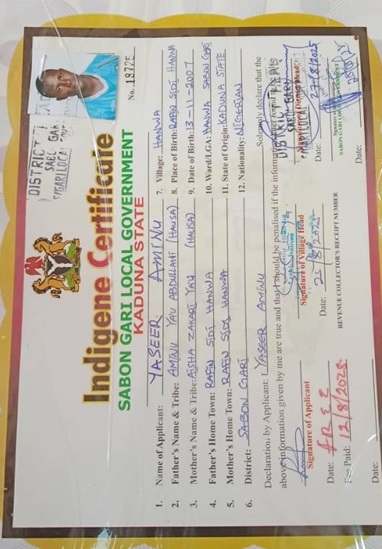 DISTRICT H
SABO GAR
No. 18725
Indigene Certificate
SABON GARI LOCAL GOVERNMENT
KADUNA STATE
1. Name of Applicant: YASEER AMINU
2. Father's Name & Tribe: AMINU YAU ABDULLAHI (HAUSA)
3. Mother's Name & Tribe: AISHA ZAKARI YAU (HAUSA)
4. Father's Home Town: RAFIN SIDI HANWA
5. Mother's Home Town: RAFIN SIDI HANWA
6. District: SABON GARI
7. Village: HANWA
8. Place of Birth: RAFIN SIDI HANWA
9. Date of Birth: 13-11-2007
10. Ward/LGA: HANWA SABON GARI
11. State of Origin: KADUNA STATE
12. Nationality: NIGERIAN
Declaration by Applicant: I YASEER AMINU Solemnly declare that the
above information given by me are true and that I should be penalised if the information
Signature of Applicant
Date:
Fee Paid: 12/8/2025
Date:
Signature of Village Head
Date:
REVENUE COLLECTOR'S RECEIPT NUMBER
DISTRICT
SABO GARI
Date: 27/8/2025
SABON GARI
Date: